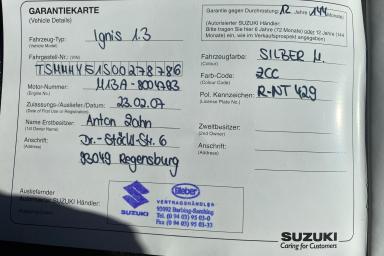 GARANTIEKARTE
(Vehicle Details)
Garantie gegen Durchrostung 12 Jahre 144 (Monate)
(Autorisierter SUZUKI Händler:
Bitte tragen Sie hier 6 Jahre (72 Monate) oder 12 Jahre (144
Monate) ein, wie im Verkaufsprospekt angegeben)
Fahrzeug-Typ: Ignis 1.3
(Vehicle Model)
Fahrgestell-Nr.: (VIN)
Fahrzeugfarbe: SILBER M.
(Colour)
Motor-Nummer:
(Engine No.)
Farb-Code: ZCC
(Colour)
Zulassungs-/Auslief.-/Datum: 23.02.07
(Date of First Use or Registration)
Pol. Kennzeichen: R-NT 429
(License Plate No.)
Name Erstbesitzer: Anton
(1st Owner Name)
Zweitbesitzer:
(2nd Owner)
Anschrift: Dr.-Stöckl-Str. 6
(Address)
93049 Regensburg
Anschrift:
(Address)
Ausliefernder
Autorisierter SUZUKI
SUZUKI
Bieber
VERTRAGSHÄNDLER
93092 Barbing-Sarching
Tel (0 94 03) 95 03-0
Fax (0 94 03) 95 03-33
SUZUKI
Caring for Customers